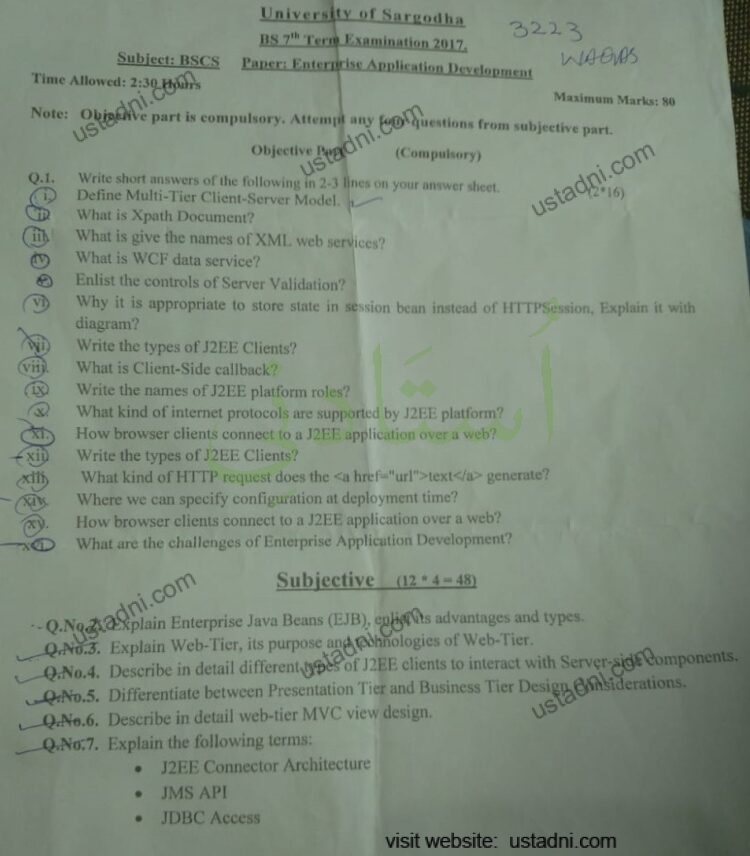 University of Sargodha
BS 7th Term Examination 2017.
3223
WAQAS
Subject: BSCS Paper: Enterprise Application Development
Time Allowed: 2:30 Hours
Maximum Marks: 80
Note: Objective part is compulsory. Attempt any four questions from subjective part.
Objective Part (Compulsory)
Q.1. Write short answers of the following in 2-3 lines on your answer sheet. (2*16)
i. Define Multi-Tier Client-Server Model.
ii. What is Xpath Document?
iii. What is give the names of XML web services?
iv. What is WCF data service?
v. Enlist the controls of Server Validation?
vi. Why it is appropriate to store state in session bean instead of HTTPSession, Explain it with
diagram?
vii. Write the types of J2EE Clients?
viii. What is Client-Side callback?
ix. Write the names of J2EE platform roles?
x. What kind of internet protocols are supported by J2EE platform?
xi. How browser clients connect to a J2EE application over a web?
xii. Write the types of J2EE Clients?
xiii. What kind of HTTP request does the <a href="url">text</a> generate?
xiv. Where we can specify configuration at deployment time?
xv. How browser clients connect to a J2EE application over a web?
xvi. What are the challenges of Enterprise Application Development?
اُستادنی
Subjective (12 * 4 = 48)
Q.No.2. Explain Enterprise Java Beans (EJB), enlist its advantages and types.
Q.No.3. Explain Web-Tier, its purpose and technologies of Web-Tier.
Q.No.4. Describe in detail different types of J2EE clients to interact with Server-side components.
Q.No.5. Differentiate between Presentation Tier and Business Tier Design Considerations.
Q.No.6. Describe in detail web-tier MVC view design.
Q.No.7. Explain the following terms:
• J2EE Connector Architecture
• JMS API
• JDBC Access
ustadni.com
ustadni.com
ustadni.com
ustadni.com
ustadni.com
ustadni.com
visit website: ustadni.com